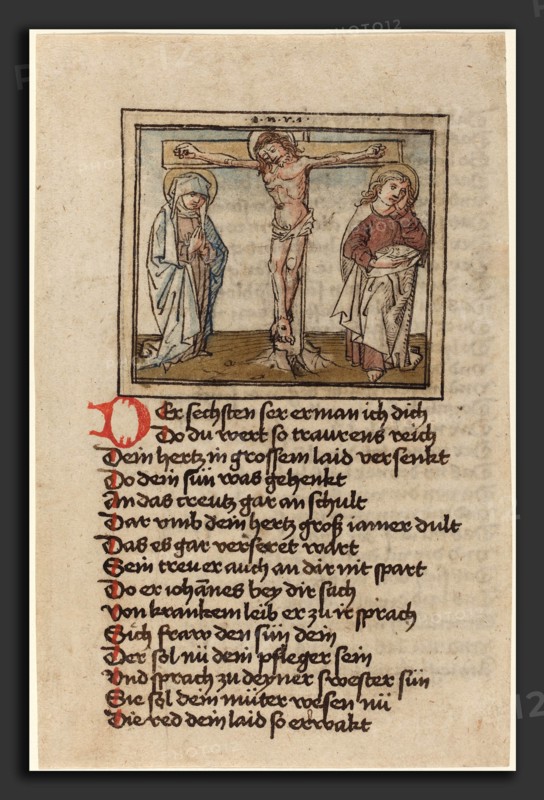 · i · n · r · i ·
Der sechsten ser erman ich dich
Do du wert so traurens reich
Dein hertz in grossem laid versenkt
Do dein sün was gehenkt
An das creutz gar an schult
Dar vmb dein hertz groß iamer dult
Das es gar verseret wart
Sein treu er auch an dir nit spart
Do er iohānes bey dir sach
Von krankem leib er zu ir sprach
Sich fraw den sün dein
Der sol nū dein pfleger sein
Vnd sprach zu deyner swester sün
Sie sol dein mūter wesen nū
Die red dein laid so erwakt